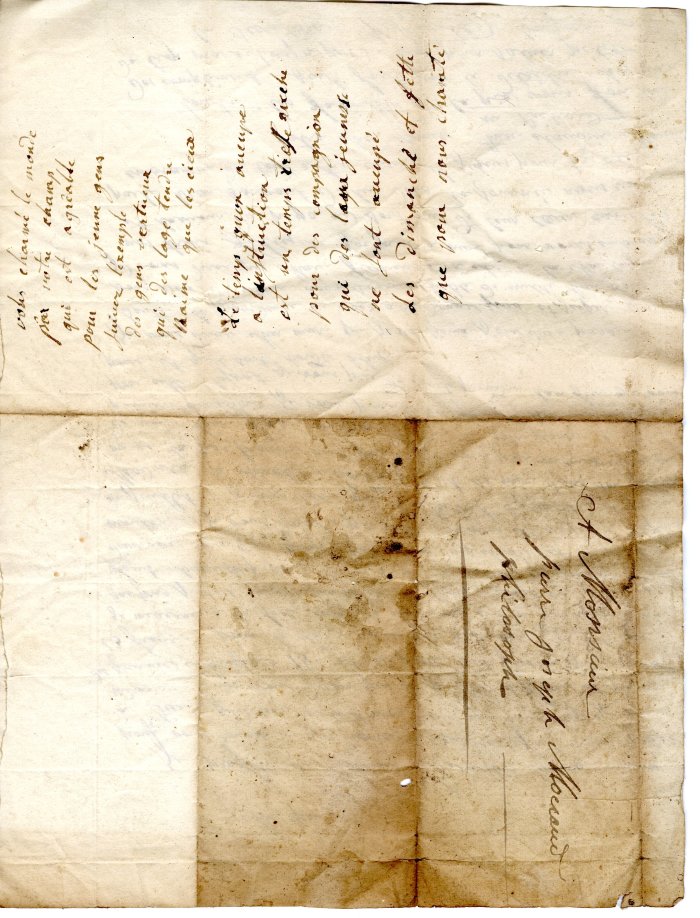 vous charmé le monde
par votre champ
qui est agréable
pour les jeune gens
suivez lexemple
des gens vertueux
qui des lage tendre
naime que les cieux
Le temps quon oucupe
a linstruction
est un temps
pour des compagnon
qui des lage jeunesse
ne sont oucupé
les dimanche et fette
que pour nous chanté
A Monsieur
pierre joseph
philosophe